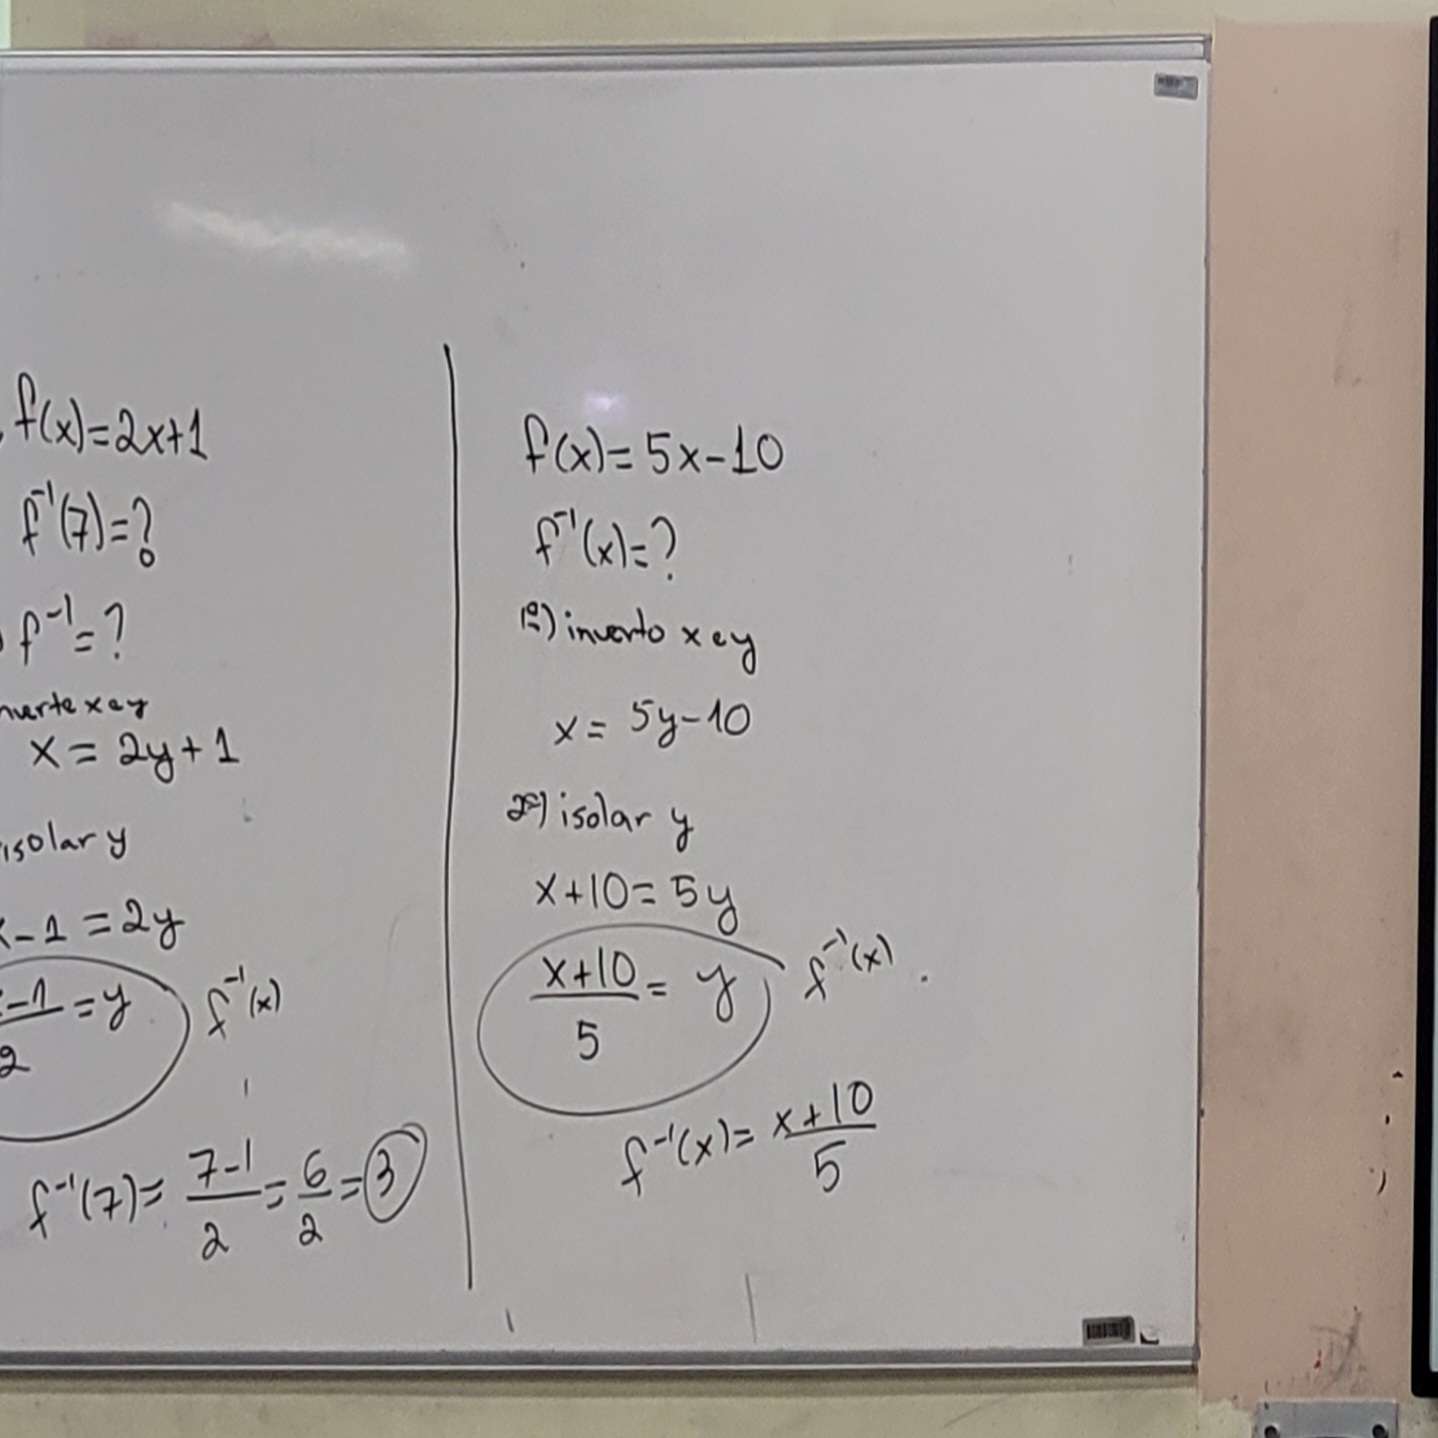 f(x)=2x+1
f⁻¹(7)=?
f⁻¹=?
x e y
x = 2y+1
isolar y
-1 = 2y
-1/2 = y f⁻¹(x)
f⁻¹(7)= 7-1/2 = 6/2 = 3
f(x)= 5x-10
f⁻¹(x)=?
1º) inverto x e y
x = 5y-10
2º) isolar y
x+10 = 5y
x+10/5 = y f⁻¹(x).
f⁻¹(x)= x+10/5